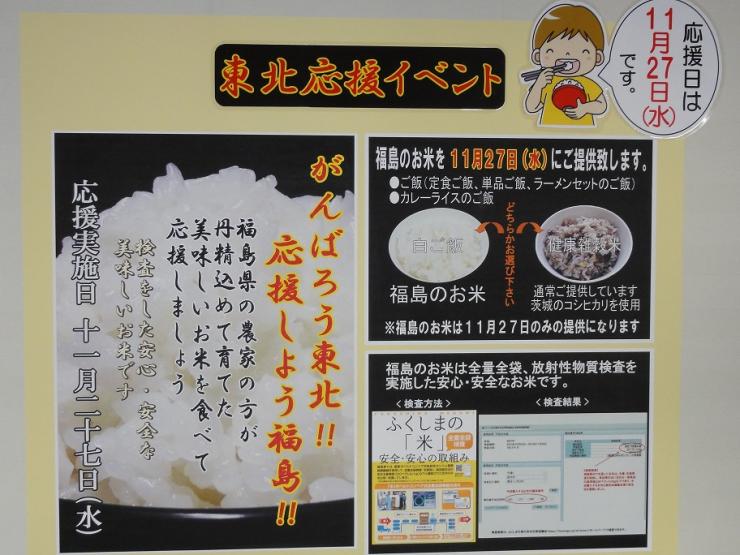 東北応援イベント
応援日は
11月27日(水)
です。
がんばろう東北!!
応援しよう福島!!
福島県の農家の方が
丹精込めて育てた
美味しいお米を食べて
応援しましょう
検査をした安心・安全な
美味しいお米です
応援実施日 十一月二十七日(水)
福島のお米を11月27日(水)にご提供致します。
●ご飯(定食ご飯、単品ご飯、ラーメンセットのご飯)
●カレーライスのご飯
白ご飯
どちらかお選び下さい
健康雑穀米
福島のお米
通常ご提供しています
茨城のコシヒカリを使用
※福島のお米は11月27日のみの提供になります
福島のお米は全量全袋、放射性物質検査を
実施した安心・安全なお米です。
<検査方法>
<検査結果>
ふくしまの
「米」
全量全袋
検査
安全・安心の取組み